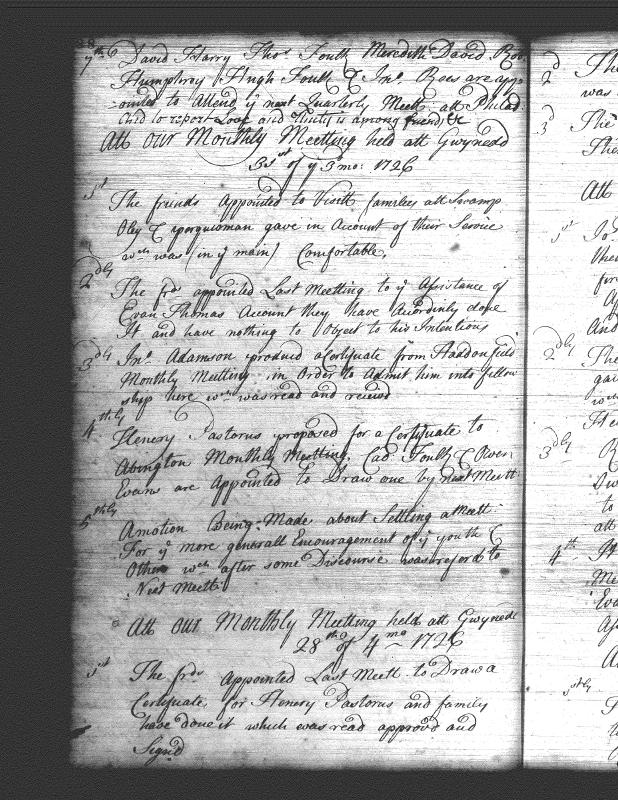 7th David Harry Thos. Foulk Meredith David Robt.
Humphrey Hugh Foulk & Jno. Rees are app-
-ointed to Attend ye next Quarterly Meett. att Philad.
and to report Love and Unity is among friends &c
Att our Monthly Meetting held att Gwynedd
31st of ye 3mo: 1726
1st
The friends Appointed to Visitt families att Swamp
Oley & gave in Account of their Service
wch was (in ye main) Comfortable,
2dly
The frds appointed Last Meetting to ye Assistance of
Evan Thomas Account they have Acordinly done
It and have nothing to Object to his Intentions
3dly Jno. Adamson produced a Certificate from Haddonfield
Monthly Meetting in Order to Admit him into fellow
ship here wch was read and receivd
4thly
Henery Pastorus proposed for a Certificate to
Abington Monthly Meetting, Cad. Foulk & Owen
Evans are Appointed to Draw one by next Meett
5thly
A motion Being Made about Settling a Meett
For ye more generall Encouragement of ye youth &
Others wch after some Discourse was referd to
Next Meett
Att our Monthly Meetting held att Gwynedd
28th of 4mo 1726
1st
The frds Appointed Last Meett. to Draw a
Certificate for Henery Pastorus and family
have done it which was read approvd and
Signd
2d
was
3d The
The
Att
1st Jo
And
2dly The
wch
3dly
to
att
4th
Me
Eva
5thly